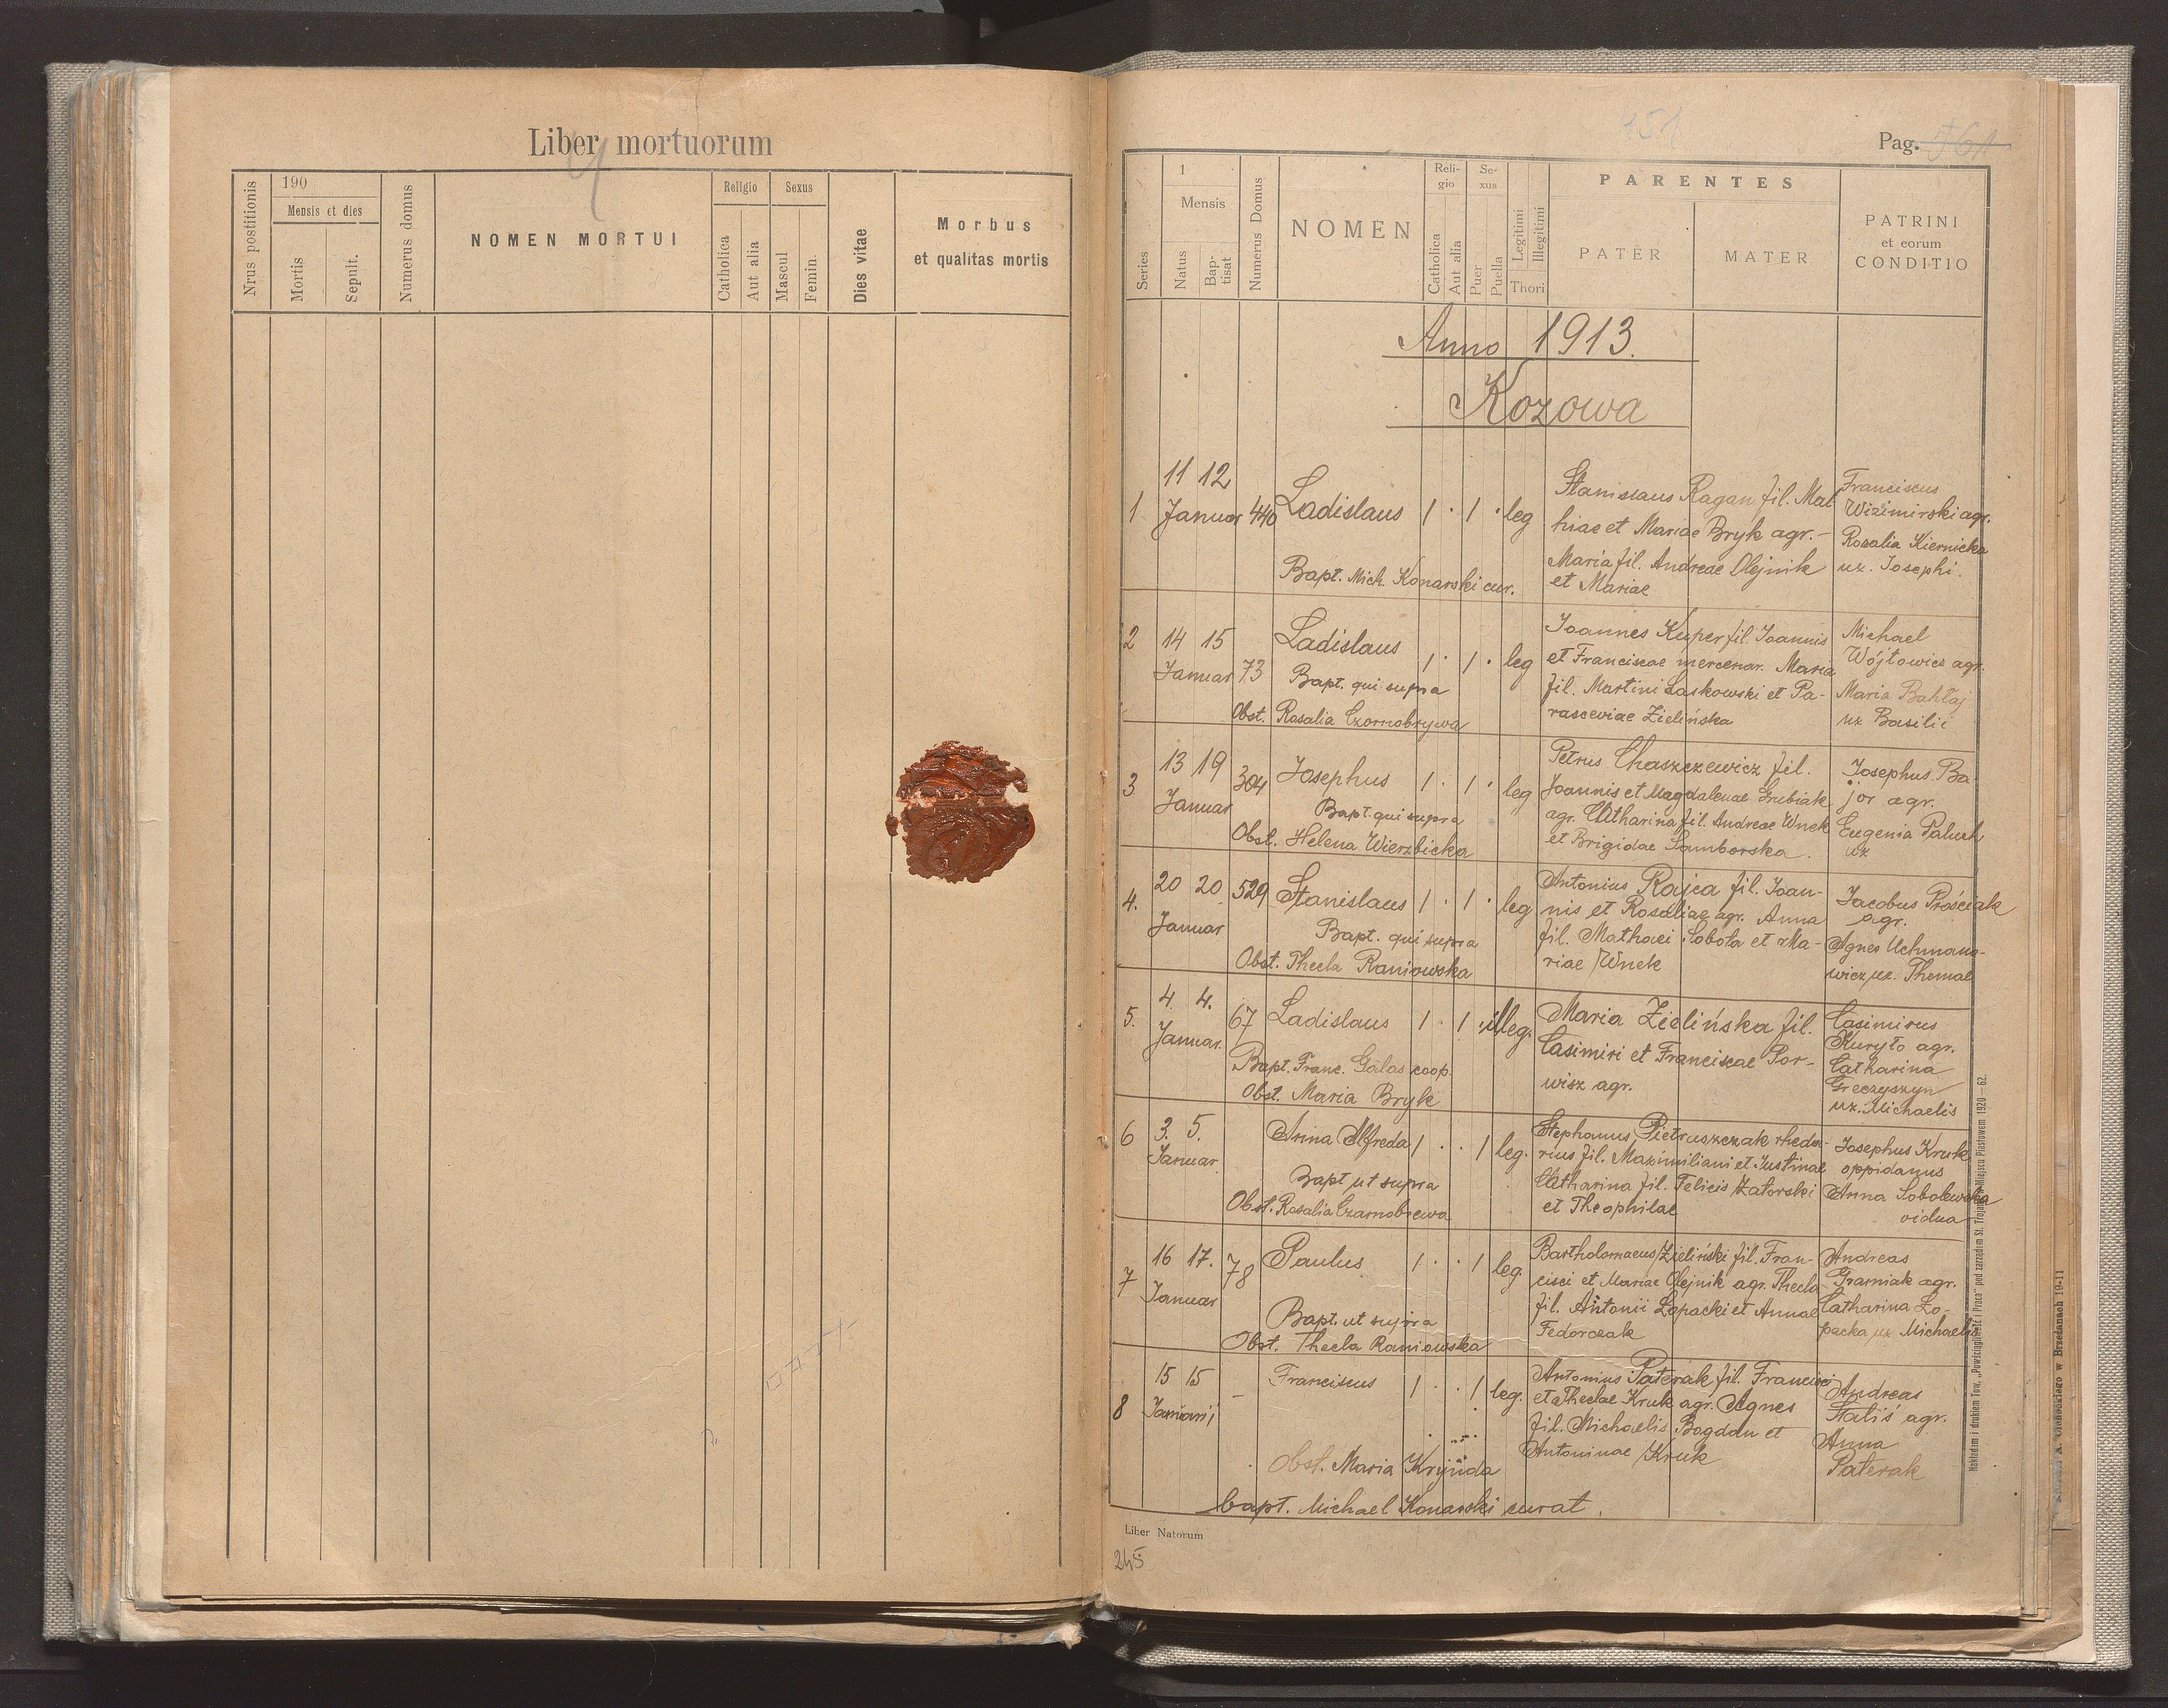 Liber mortuorum
Nrus postitionis
190
Mensis et dies
Mortis
Sepult.
Numerus domus
NOMEN MORTUI
Religio
Catholica
Aut alia
Sexus
Mascul
Femin.
Dies vitae
Morbus
et qualitas mortis
451
Pag. 561
Series
1
Mensis
Natus
Bap-
tisat
Numerus Domus
NOMEN
Reli-
gio
Catholica
Aut alia
Se-
xus
Puer
Puella
Legitimi
Illegitimi
Thori
PARENTES
PATER
MATER
PATRINI
et eorum
CONDITIO
Anno 1913.
Kozowa
1
11 12
Januar
440
Ladislaus
1 · 1 · leg
Bapt. Mich. Konarski cur.
Stanislaus Ragan fil. Mat
hiae et Mariae Bryk agr. -
Maria fil. Andreae Olejnik
et Mariae
Franciscus
Wizimirski agr.
Rosalia Kiernicka
ux. Josephi.
2
14 15
Januar
73
Ladislaus
1 · 1 · leg
Bapt. qui supra
Obst. Rosalia Czornobrywa
Joannes Kuper fil. Joannis
et Franciscae mercenar. Maria
fil. Martini Laskowski et Pa-
rasceviae Zielińska
Michael
Wójtowicz agr.
Maria Bahtaj
ux Basilii
3
13 19
Januar
304
Josephus
1 · 1 · leg
Bapt. qui supra
Obst. Helena Wierzbicka
Petrus Chaszczewicz fil.
Joannis et Magdalenae Grubiak
agr. Catharina fil. Andreae Wnek
et Brigidae Samborska.
Josephus Ba-
jor agr.
Eugenia Paluch
ux
4.
20 20
Januar
529
Stanislaus
1 · 1 · leg
Bapt. qui supra
Obst. Thecla Raniowska
Antonius Rajca fil. Joan-
nis et Rosaliae agr. Anna
fil. Mathaei Sobota et Ma-
riae Wnek
Jacobus Prościak
agr.
Agnes Uchmano-
wicz ux. Thomae
5.
4. 4.
Januar.
67
Ladislaus
1 · 1 · illeg.
Bapt. Franc. Galas coop.
Obst. Maria Bryk
Maria Zielińska fil.
Casimiri et Franciscae Por-
wisz agr.
Casimirus
Kuryło agr.
Catharina
Greczyszyn
ux. Michaelis
6
3. 5.
Januar.
Anna Alfreda
1 · · 1 leg.
Bapt ut supra
Obst. Rosalia Czarnobrewa
Stephanus Pietruszczak rheda-
rius fil. Maximiliani et Justinae
Catharina fil. Felicis Zatorski
et Theophilae
Josephus Kruk
oppidanus
Anna Sobolewska
vidua
7
16 17.
Januar
78
Paulus
1 · · 1 leg
Bapt. ut supra
Obst. Thecla Raniowska
Bartholomaeus Zieliński fil. Fran-
cisci et Mariae Olejnik agr. Thecla
fil. Antonii Łopacki et Annae
Fedorczak
Andreas
Grarniak agr.
Catharina Ło-
packa ux Michaelis
8
15 15
Januarii
-
Franciscus
1 · · 1 leg.
Obst. Maria Krynda
bapt. Michael Konarski curat.
Antonius Paterak fil. Francisci
et Theclae Kruk agr. Agnes
fil. Michaelis Bogdan et
Antoninae Kruk
Andreas
Staliś agr.
Anna
Paterak
Liber Natorum
245
Nakładem i drukiem Tow. „Powściągliwość i Praca" pod zarządem St. Trojana w Miejscu Piastowem 1920 — 62.
w Brzeżanach 19-11